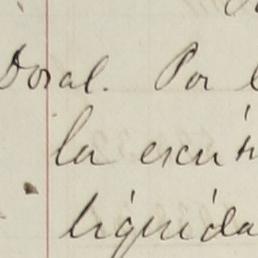 Doral. Por l
la escri
liquida